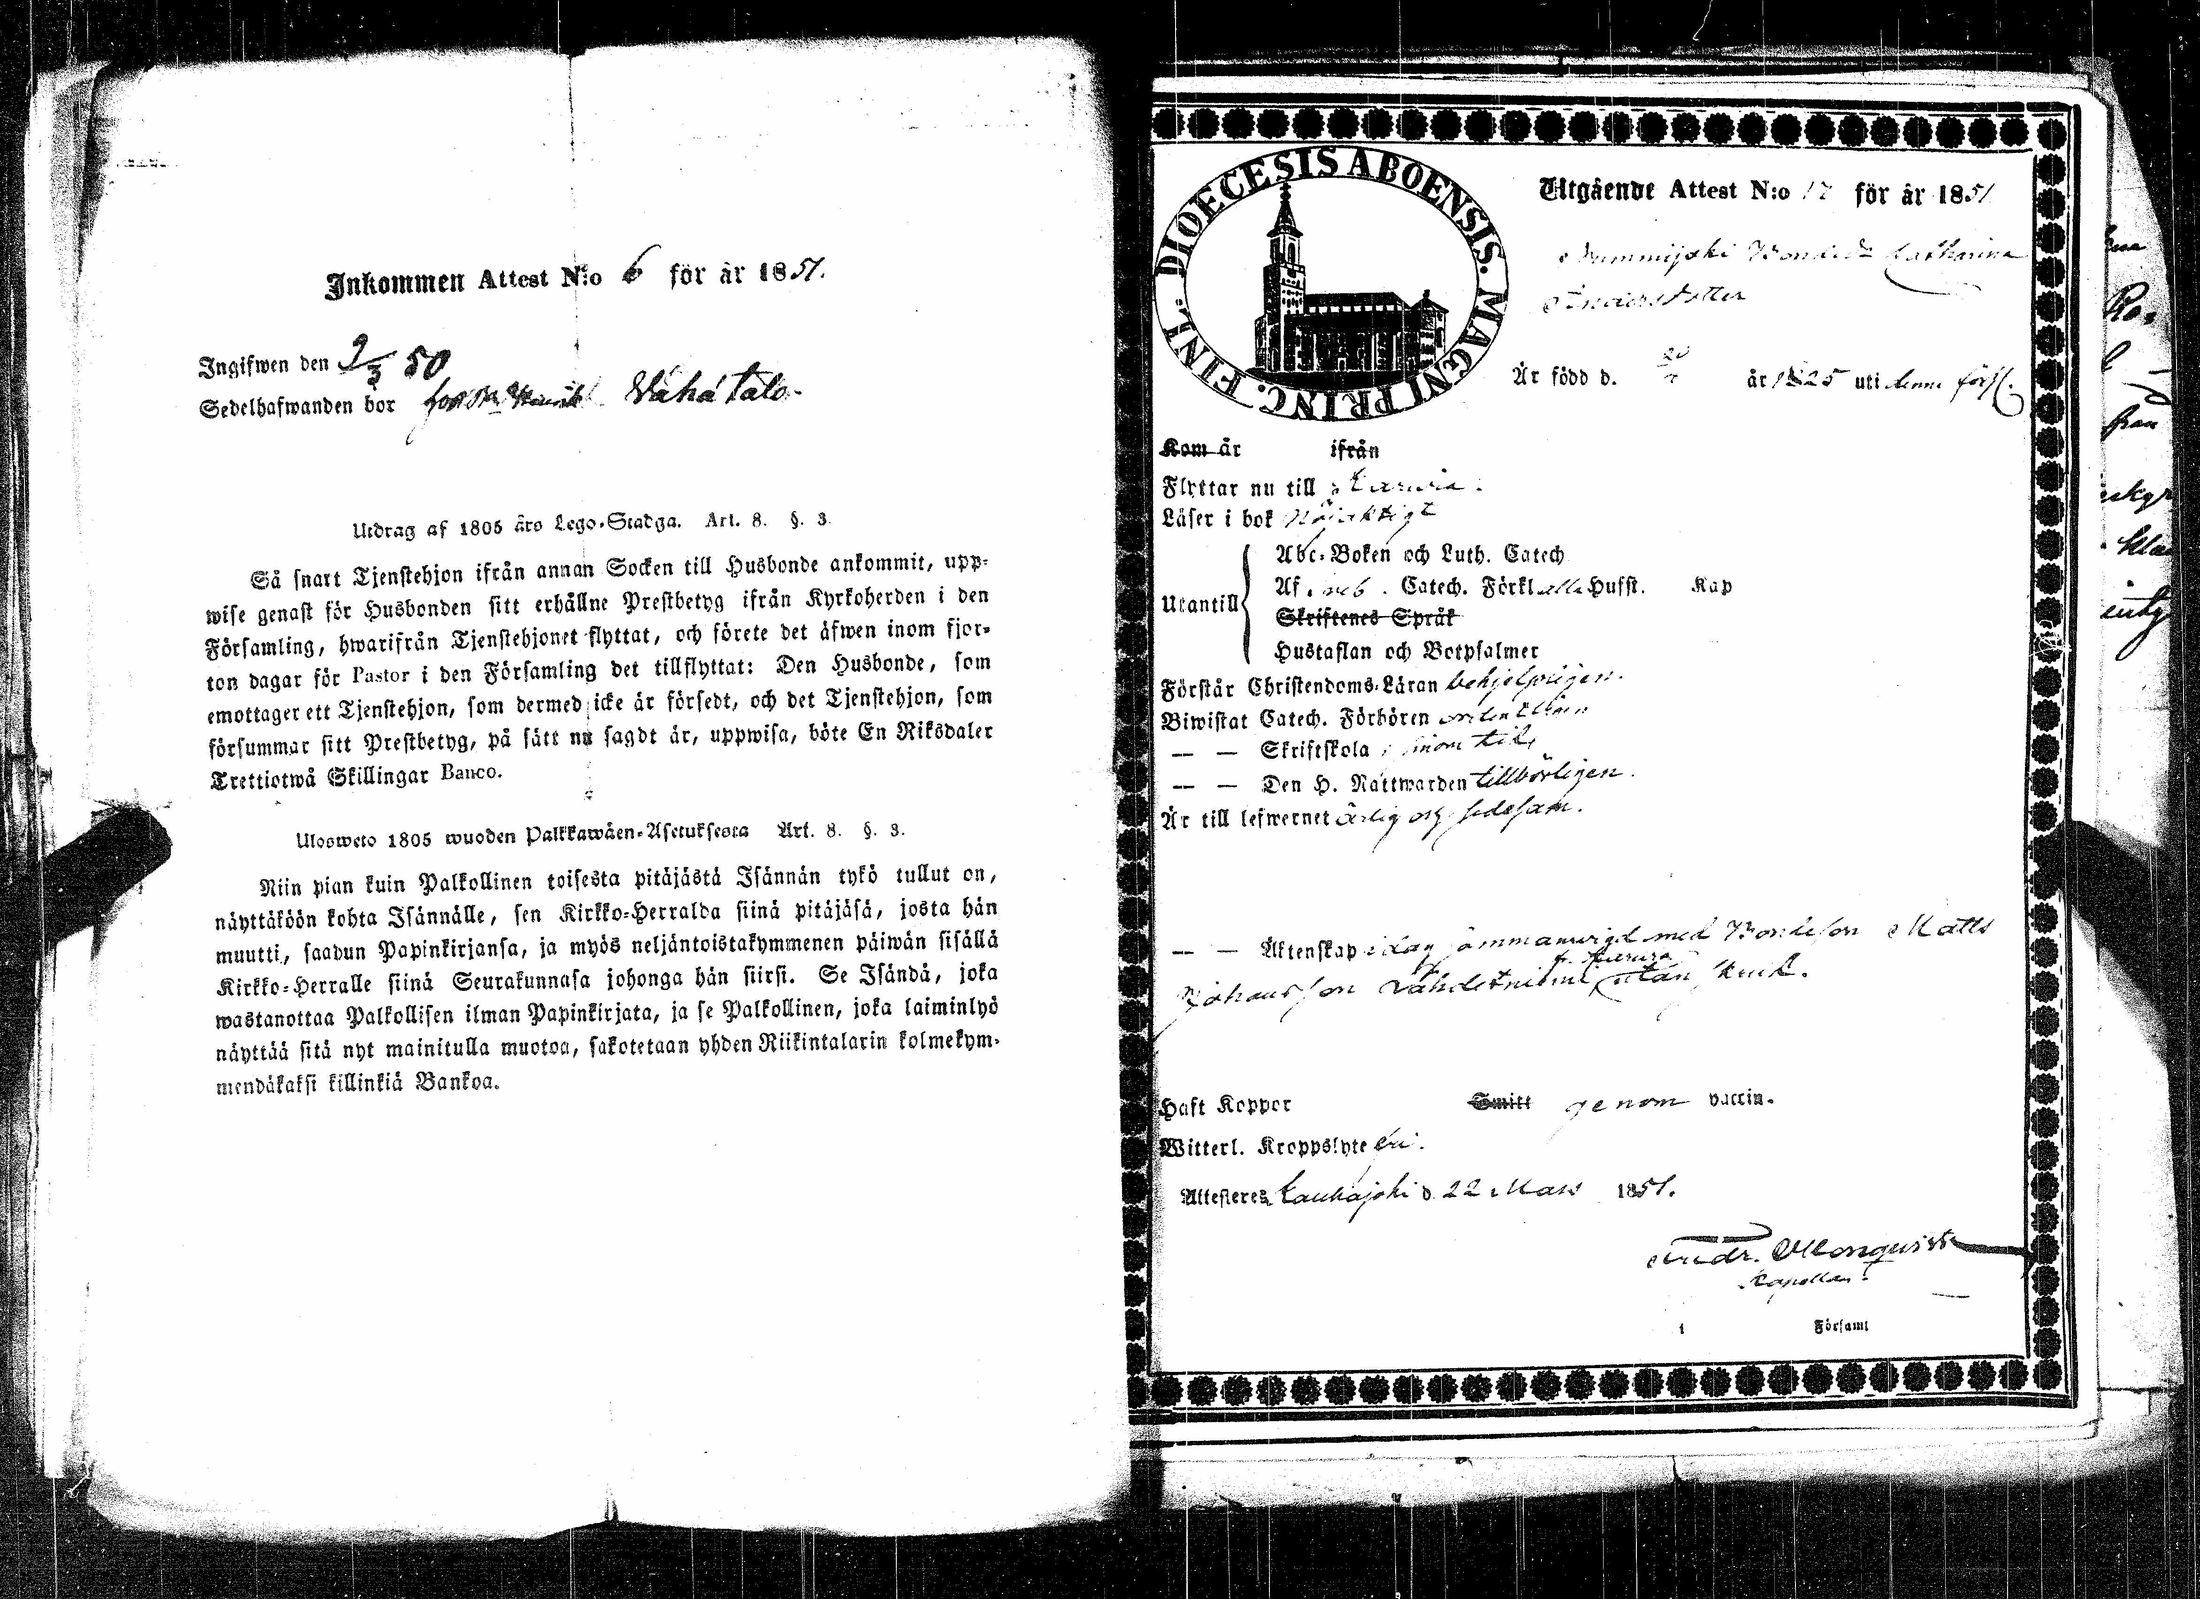 Inkommen Attest N:o 6 för år 1851.
Ingifwen den 9/3 50
Sedelhafwanden bor Wähä talo.
Utdrag af 1805 års Lego-Stadga. Art. 8. §. 3.
Så snart Tjenstehjon ifrån annan Socken till Husbonde ankommit, upp-
wise genast för Husbonden sitt erhållne Prestbetyg ifrån Kyrkoherden i den
Församling, hwarifrån Tjenstehjonet flyttat, och förete det äfwen inom fjor-
ton dagar för Pastor i den Församling det tillflyttat: Den Husbonde, som
emottager ett Tjenstehjon, som dermed icke är försedt, och det Tjenstehjon, som
försummar sitt Prestbetyg, på sätt nu sagdt är, uppwisa, böte En Riksdaler
Trettiotwå Skillingar Banco.
Ulosweto 1805 wuoden Palkkawäen-Asetuksesta Art. 8. §. 3.
Niin pian kuin Palkollinen toisesta pitäjästä Isännän tykö tullut on,
näyttäköön kohta Isännälle, sen Kirkko-Herralda siinä pitäjäsä, josta hän
muutti, saadun Papinkirjansa, ja myös neljäntoistakymmenen päiwän sisällä
Kirkko-Herralle siinä Seurakunnasa johonga hän siirsi. Se Isändä, joka
wastanottaa Palkollisen ilman Papinkirjata, ja se Palkollinen, joka laiminlyö
näyttää sitä nyt mainitulla muotoa, sakotetaan yhden Riikintalarin kolmekym-
mendäkaksi killinkiä Bankoa.
DIOECESIS ABOENSIS. MAGNI PRINC. FINL.
Utgående Attest N:o 17 för år 1851
Nummijoki Bonded. Catharina
Andersdotter
Är född d. år 1825 uti denne förs.
Kom år ifrån
Flyttar nu till Karvia.
Läser i bok Nöjaktigt
Utantill
Abc-Boken och Luth. Catech
Af Catech. Förkl alla Hufst. Kap
Skriftenes Språk
Hustaflan och Botpsalmer
Förstår Christendoms-Läran behjelpligen.
Biwistat Catech. Förhören ordentligen
— — Skriftskola inom tid
— — Den H. Nattwarden tillbörligen.
Är till lefwernet ärlig och sedesam.
— — Äktenskap idag sammanvigd med Bondeson Matts
Johansson Vähäetniemi fr. Karvia, utan qvick.
Haft Koppor Smitt genom vaccin.
Witterl. Kroppslyte fri.
Attesteres Kauhajoki d. 22 Mars 1851.
Andr. Monqvist
Kapellan.
i Församl